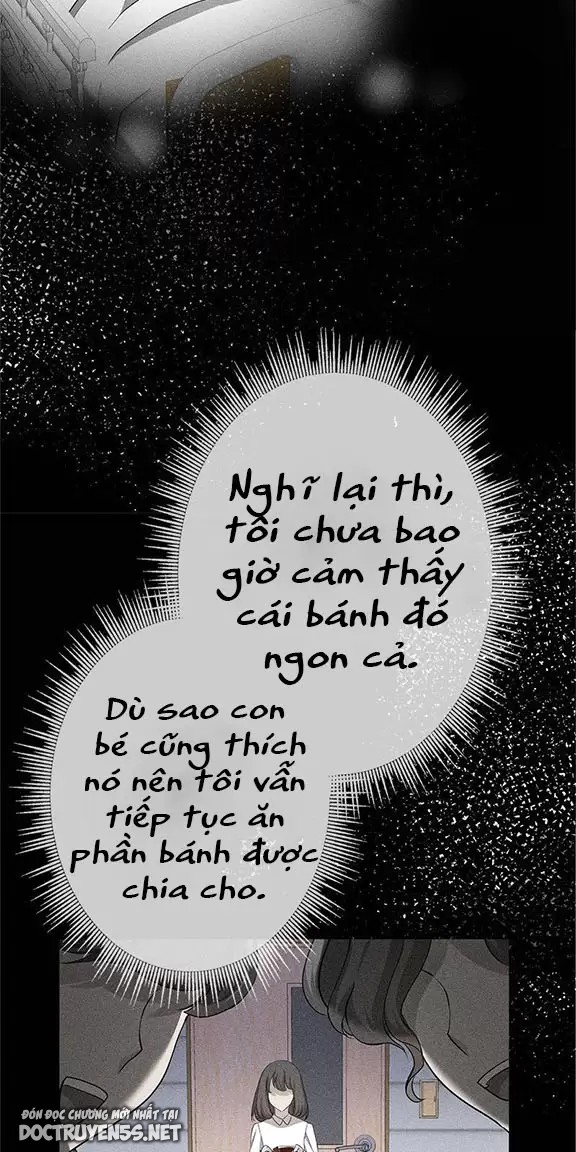 Nghĩ lại thì,
tôi chưa bao
giờ cảm thấy
cái bánh đó
ngon cả.
Dù sao con
bé cũng thích
nó nên tôi vẫn
tiếp tục ăn
phần bánh được
chia cho.
ĐÓN ĐỌC CHƯƠNG MỚI NHẤT TẠI
DOCTRUYEN5S.NET